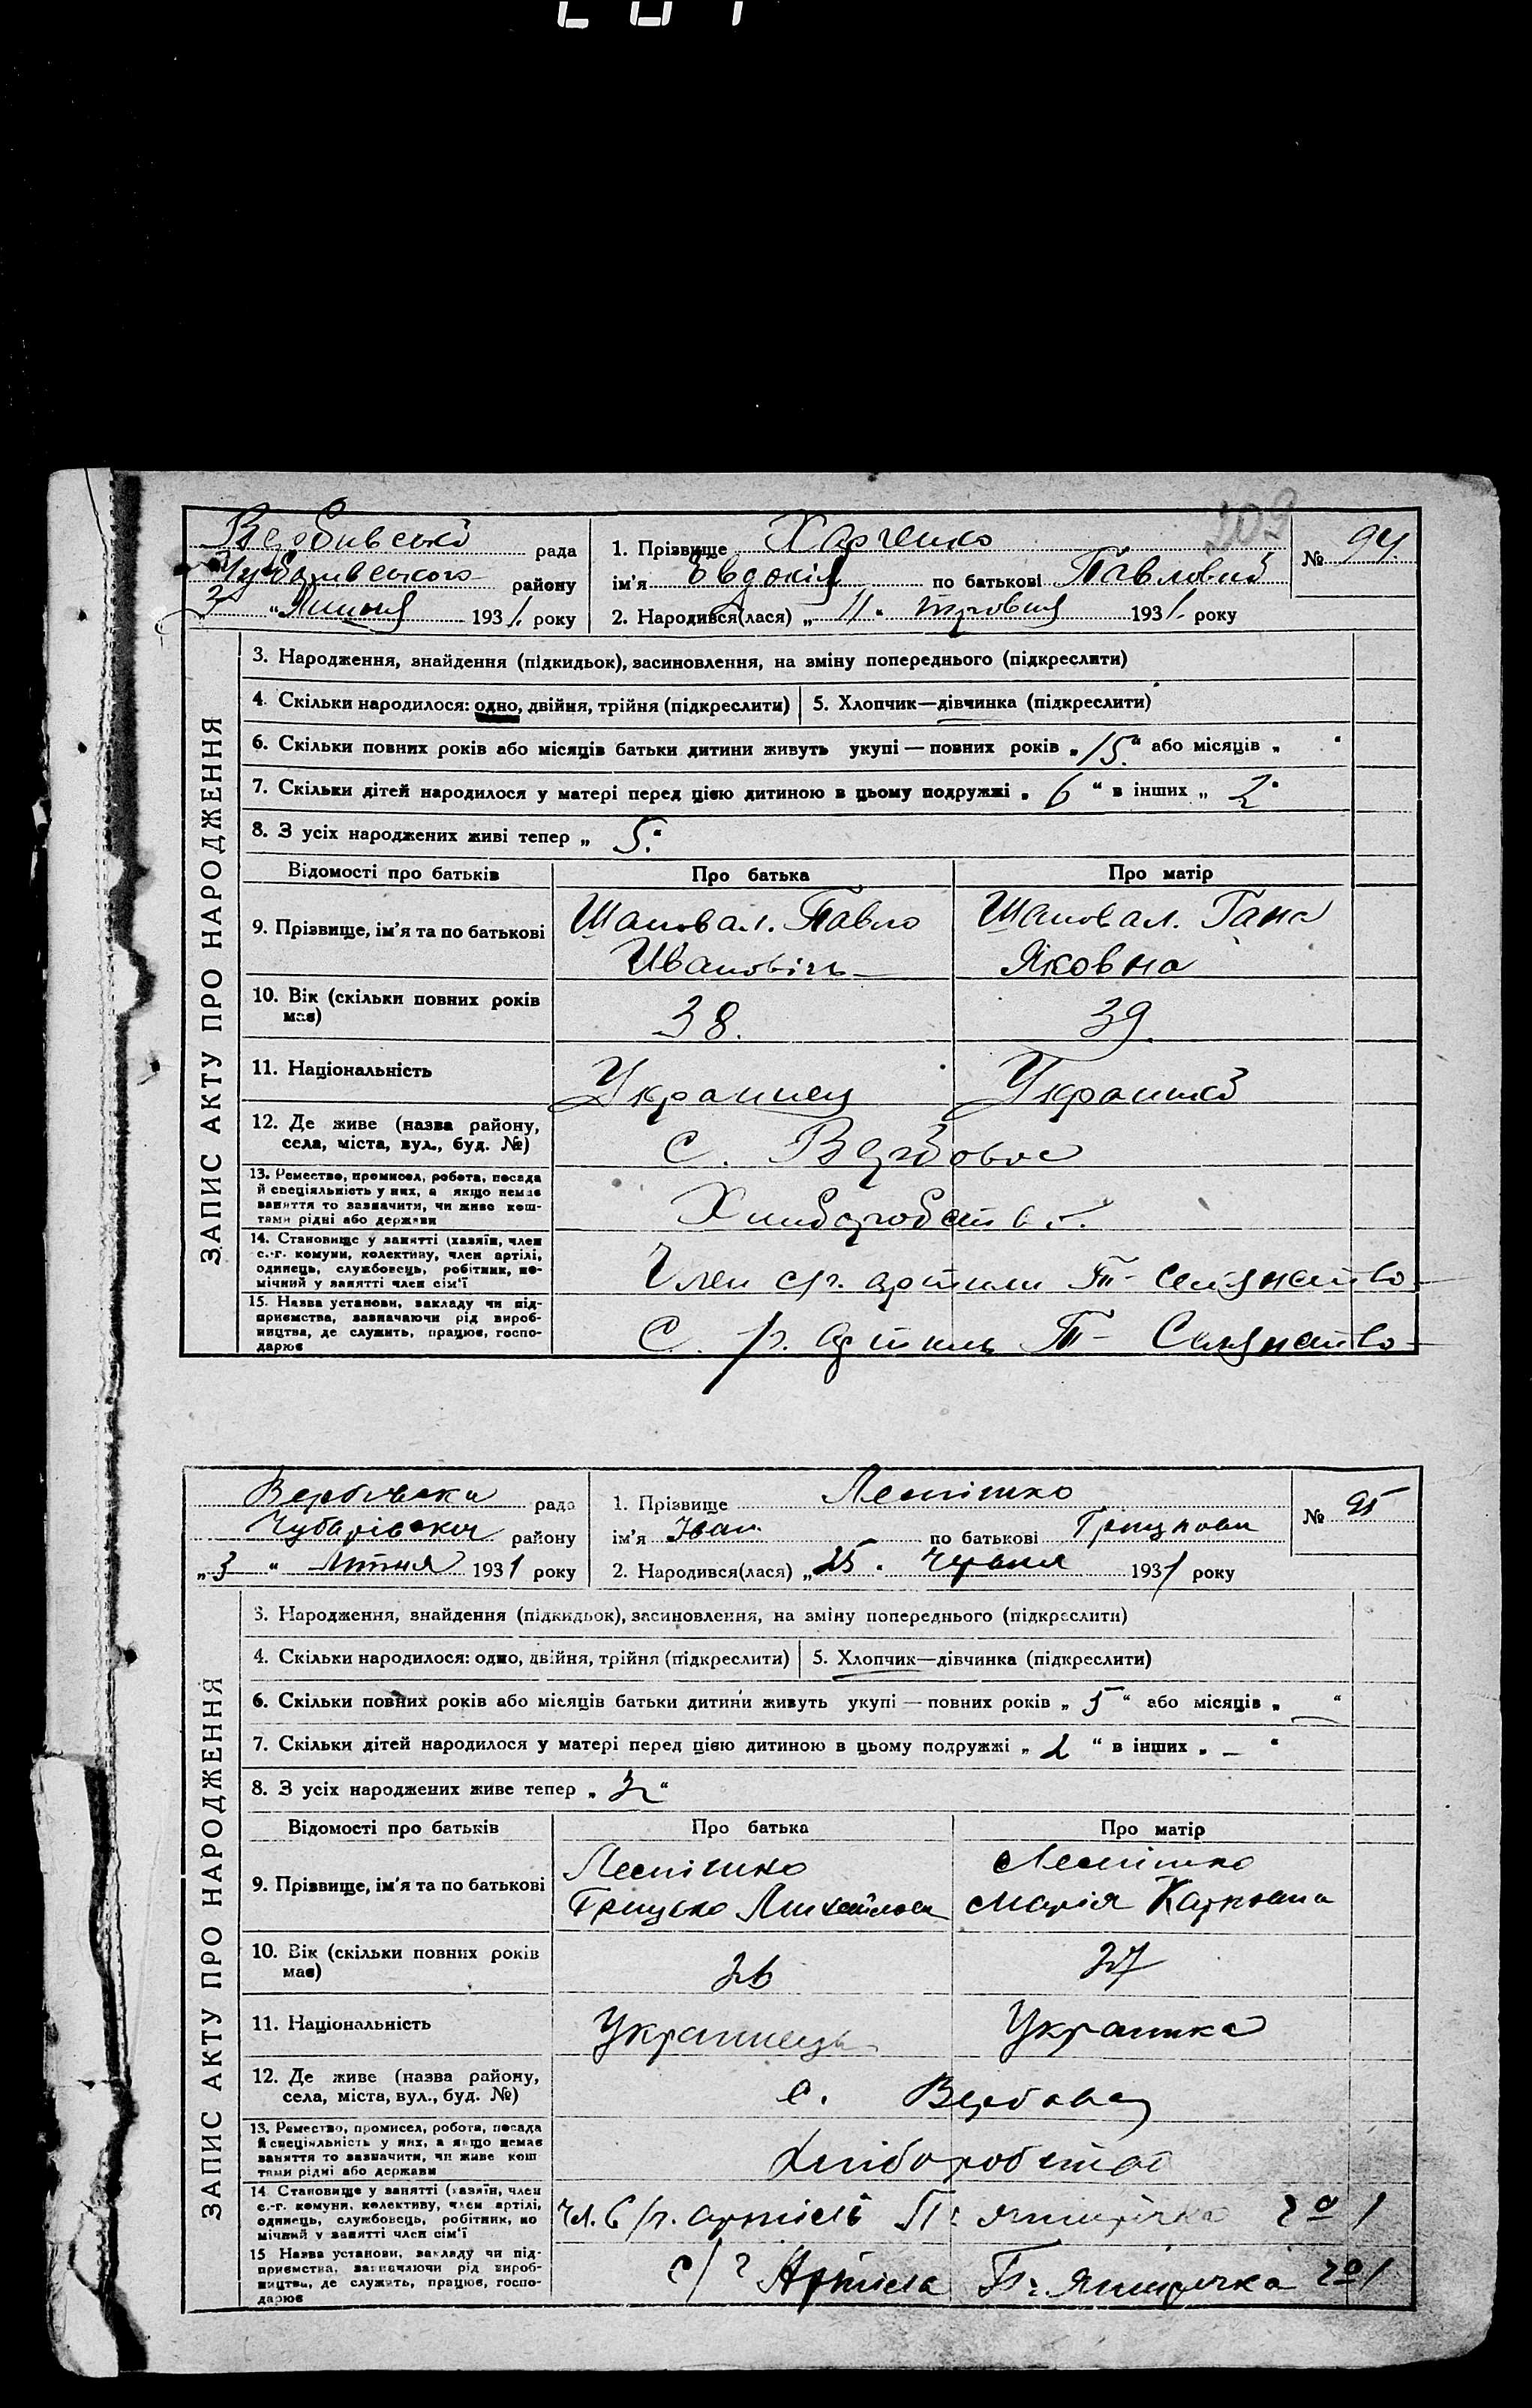 209
Вербивської рада
Чубаривського району
"3" Липня 1931 року
1. Прізвище Харченко
ім'я Евдокія по батькові Павловна
2. Народився(лася) „11" травня 1931 року
№ 94
ЗАПИС АКТУ ПРО НАРОДЖЕННЯ
3. Народження, знайдення (підкидьок), засиновлення, на зміну попереднього (підкреслити)
4. Скільки народилося: одно, двійня, трійня (підкреслити) 5. Хлопчик—дівчинка (підкреслити)
6. Скільки повних років або місяців батьки дитини живуть укупі — повних років „15" або місяців „ "
7. Скільки дітей народилося у матері перед цією дитиною в цьому подружжі „6" в інших „2"
8. З усіх народжених живі тепер „5"
Відомості про батьків Про батька Про матір
9. Прізвище, ім'я та по батькові Шаповал. Павло Шаповал. Гана
Ивановічь Яковна
10. Вік (скільки повних років має) 38. 39.
11. Національність Украинец Украинка
12. Де живе (назва району,
села, міста, вул., буд. №) С. Вербовое
13. Ремество, промисел, робота, посада
й спеціяльність у них, а якщо немає
заняття то зазначити, чи живе кош-
тами рідні або держави
14. Становище у занятті (хазяїн, член
с.-г. комуни, колективу, член артілі,
одинець, службовець, робітник, по-
мічний у занятті член сім'ї Член с/г. артили
15. Назва установи, закладу чи під-
приємства, зазначаючи рід вироб-
ництва, де служить, працює, госпо-
дарює С. /г. артиль
рада
Чубарівська району
„3" Липня 1931 року
1. Прізвище
ім'я Іван по батькові
2. Народився(лася) „25" червня 1931 року
№ 95
ЗАПИС АКТУ ПРО НАРОДЖЕННЯ
3. Народження, знайдення (підкидьок), засиновлення, на зміну попереднього (підкреслити)
4. Скільки народилося: одно, двійня, трійня (підкреслити) 5. Хлопчик—дівчинка (підкреслити)
6. Скільки повних років або місяців батьки дитини живуть укупі — повних років „5" або місяців „ — "
7. Скільки дітей народилося у матері перед цією дитиною в цьому подружжі „2" в інших „ — "
8. З усіх народжених живе тепер
Відомості про батьків Про батька Про матір
9. Прізвище, ім'я та по батькові
Грицько Марія
10. Вік (скільки повних років має) 26 27
11. Національність Украинець Украинка
12. Де живе (назва району,
села, міста, вул., буд. №) с.
13. Ремество, промисел, робота, посада
й спеціяльність у них, а якщо немає
заняття то зазначити, чи живе кош
тами рідні або держави Хліборобство
14 Становище у занятті (хазяїн, член
с.-г. комуни, колективу, член артілі,
одинець, службовець, робітник, по
мічний у занятті член сім'ї Чл. С/г. артіль
15 Назва установи, закладу чи під-
приємства, зазначаючи рід вироб-
ництва, де служить, працює, госпо-
дарює с/г Артіль